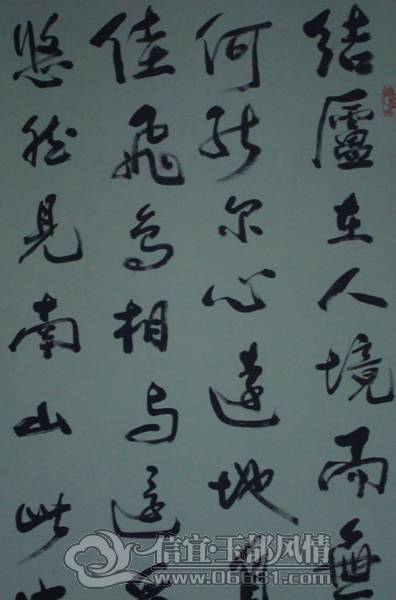 结廬在人境而無
何能尔心遠地
佳飛鳥相与還
悠然見南山此
信宜·玉都风情
www.06681.com